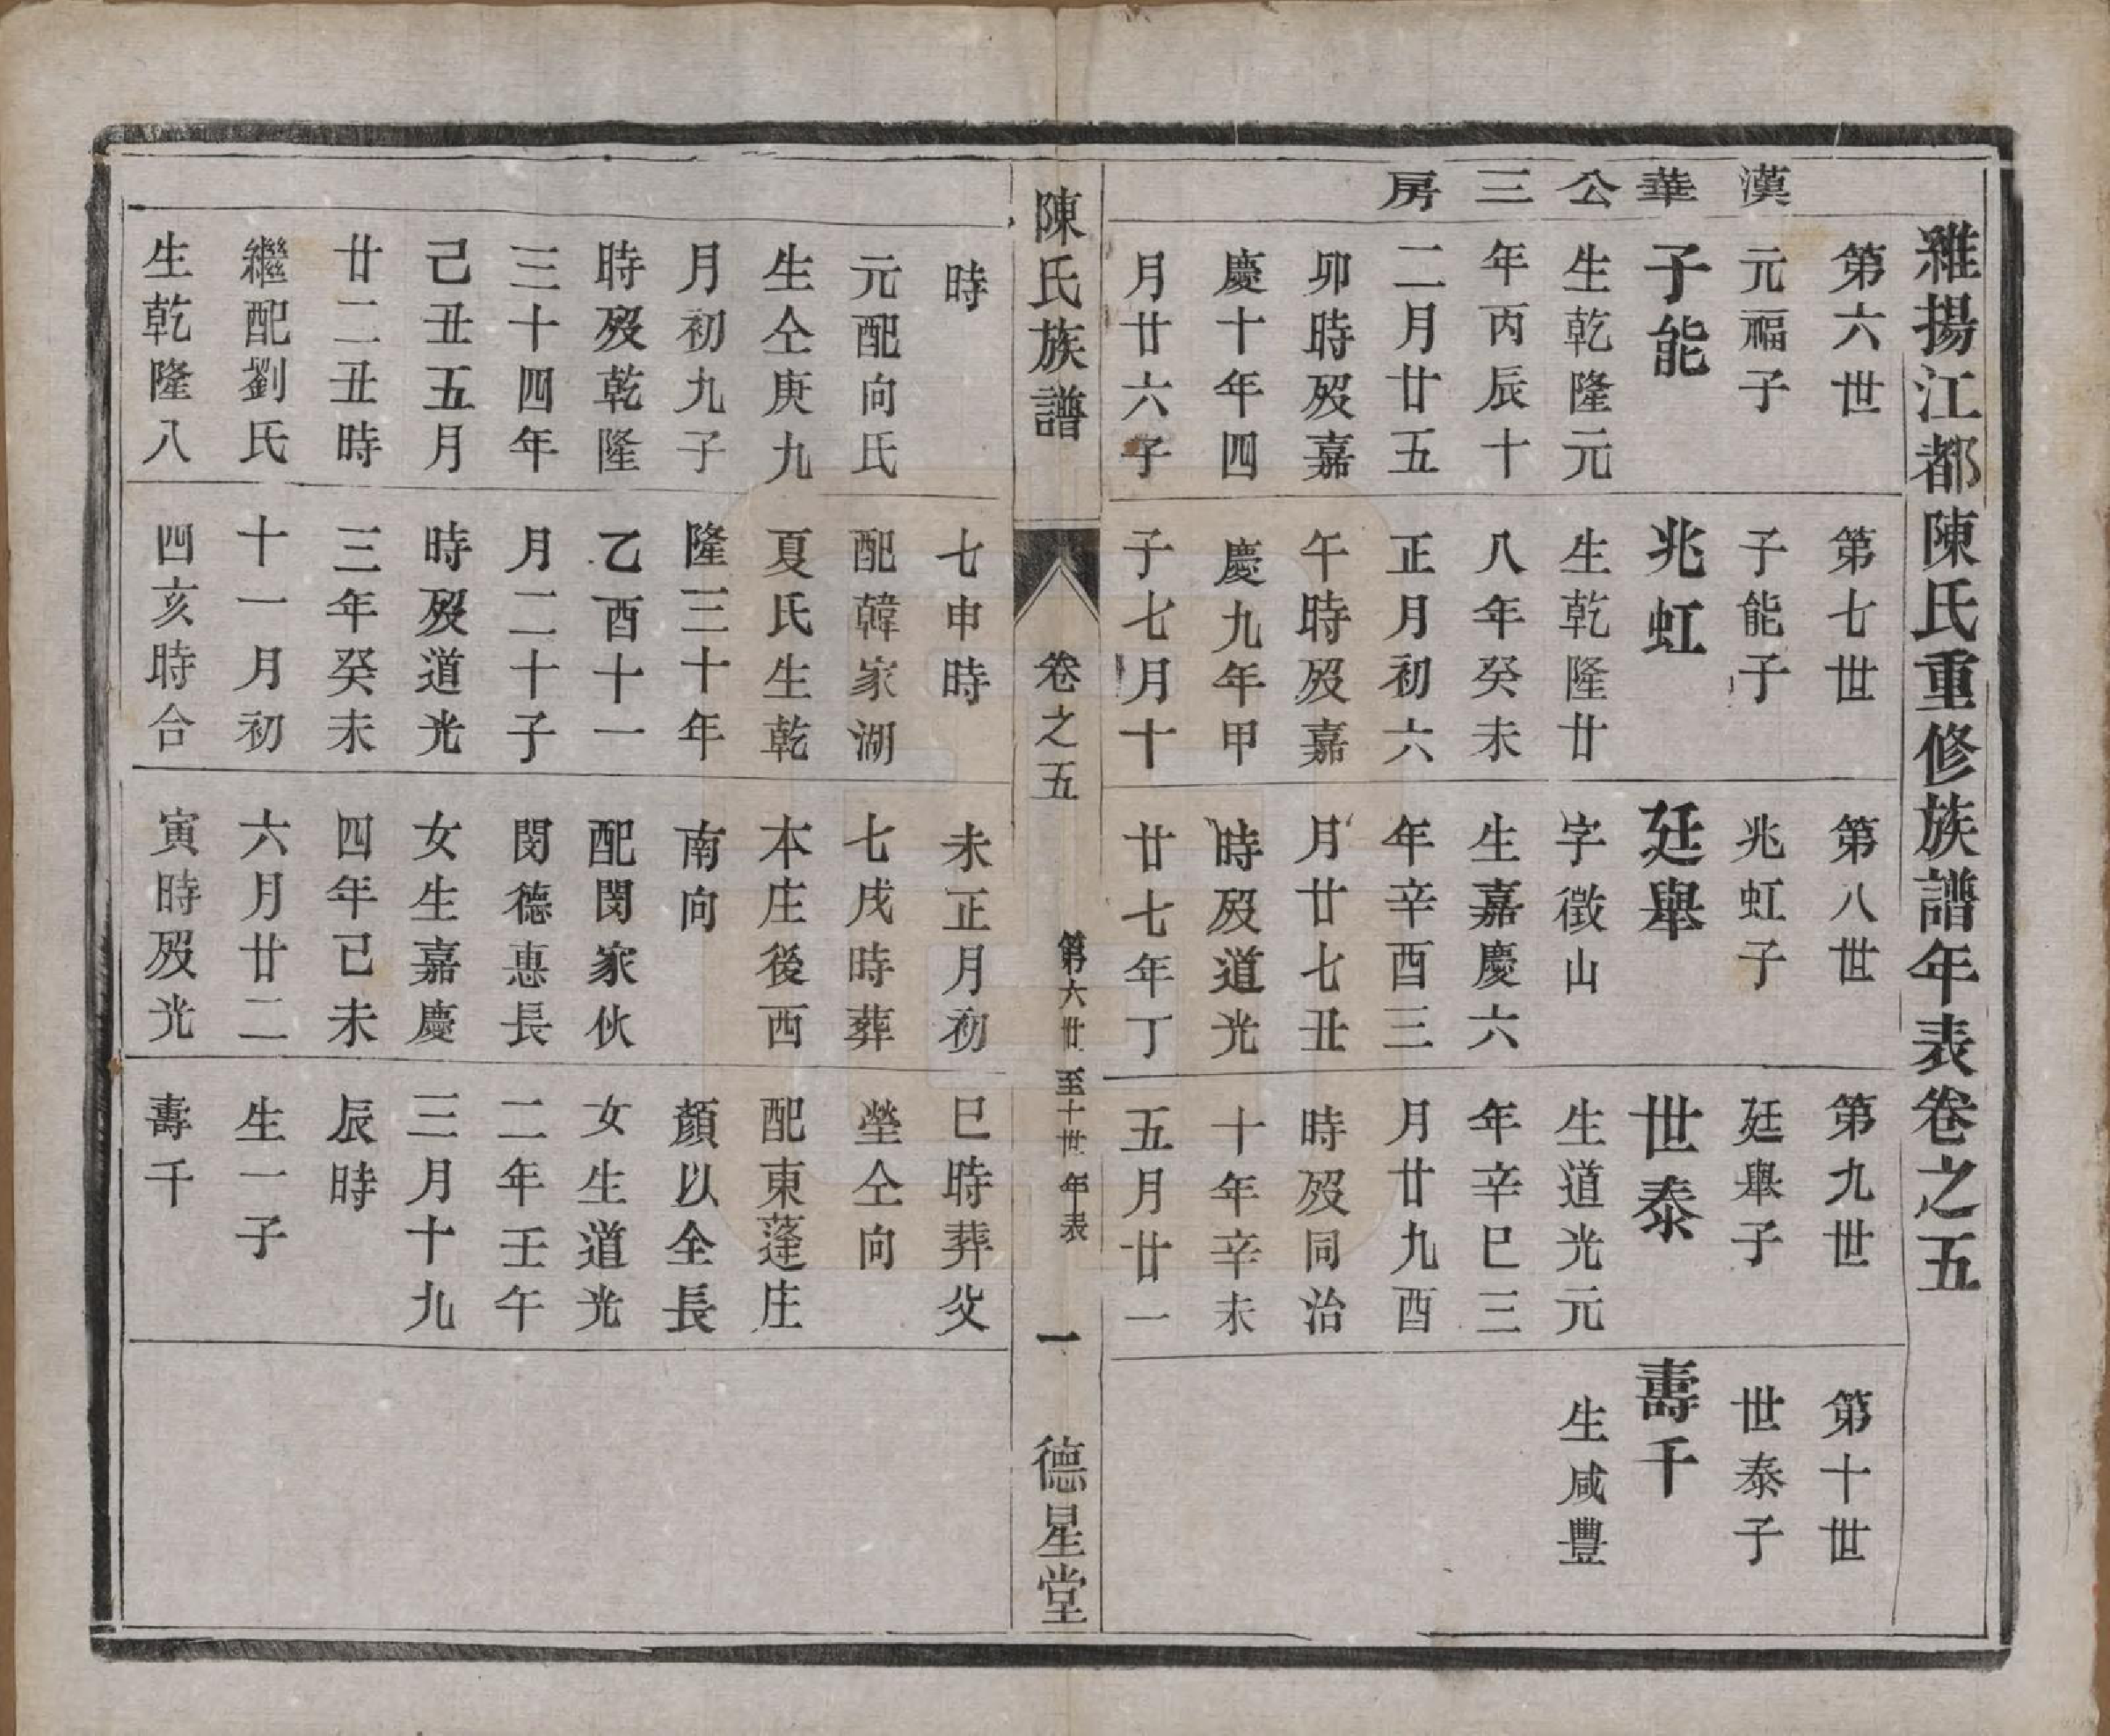 維揚江都陳氏重修族譜年表卷之五
漢華公三房
第六世
元福子
子能
生乾隆元
年丙辰十
二月廿五
卯時殁嘉
慶十年四
月廿六子
時
元配向氏
生仝庚九
月初九子
時殁乾隆
三十四年
己丑五月
廿二丑時
繼配劉氏
生乾隆八
第七世
子能子
兆虹
生乾隆廿
八年癸未
正月初六
午時殁嘉
慶九年甲
子七月十
七申時
配韓家湖
夏氏生乾
隆三十年
乙酉十一
月二十子
時殁道光
三年癸未
十一月初
四亥時合
第八世
兆虹子
廷舉
字徵山
生嘉慶六
年辛酉三
月廿七丑
時殁道光
廿七年丁
未正月初
七戌時葬
本庄後西
南向
配閔家伙
閔德惠長
女生嘉慶
四年已未
六月廿二
寅時殁光
第九世
廷舉子
世泰
生道光元
年辛巳三
月廿九酉
時殁同治
十年辛未
五月廿一
巳時葬父
塋仝向
配東蓬庄
顏以全長
女生道光
二年壬午
三月十九
辰時
生一子
壽千
第十世
世泰子
壽千
生咸豐
陳氏族譜
卷之五
第六世至十世年表
一
德星堂